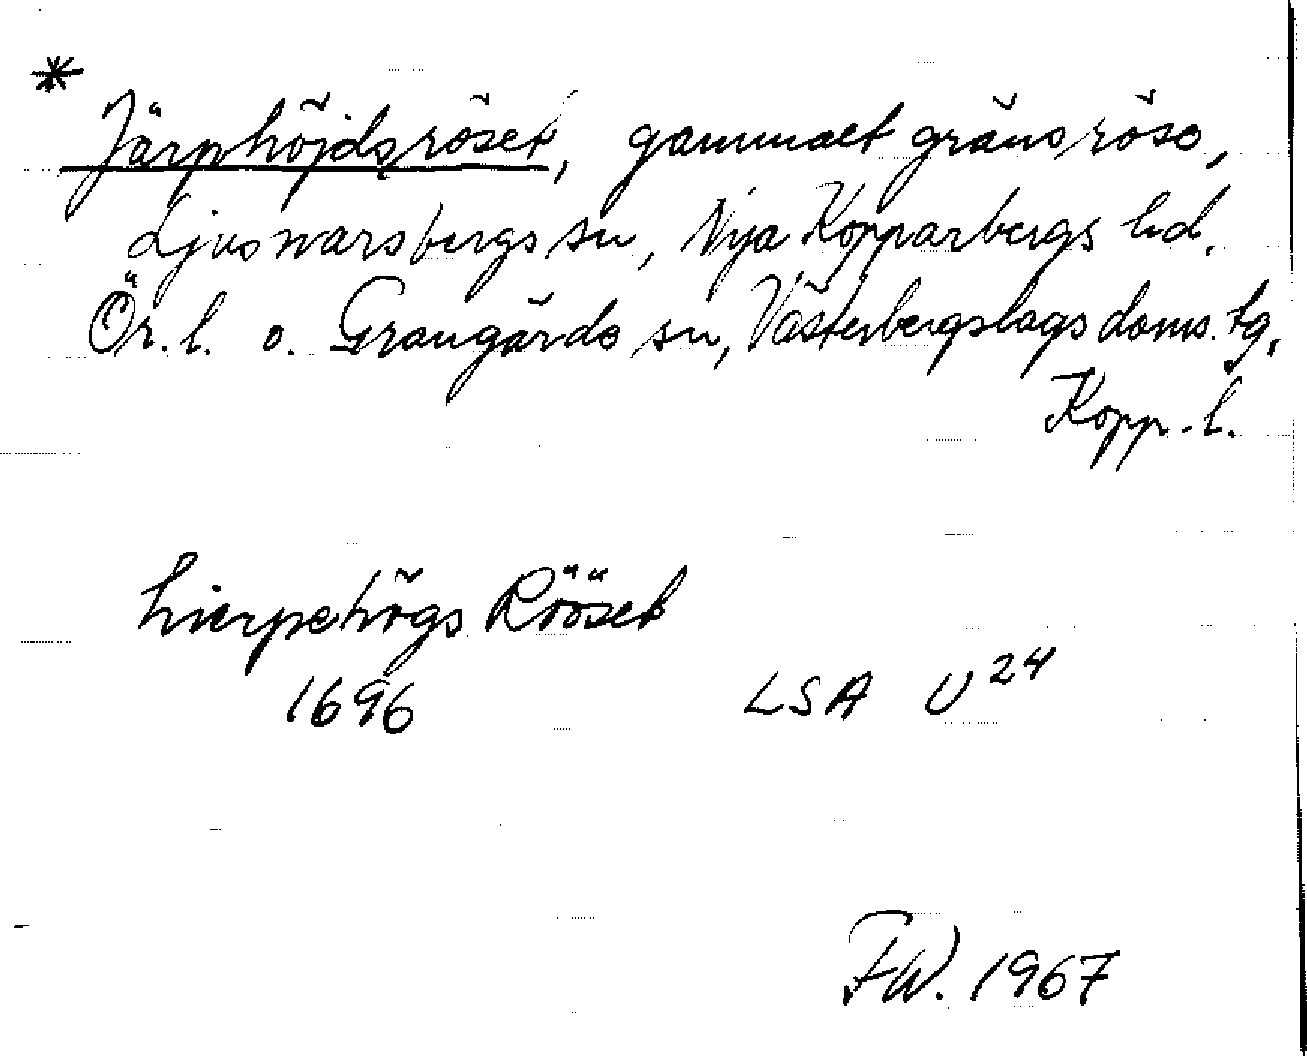 *
Järphöjdsröset, gammalt gränsröse,
Ljusnarsbergs sn, Nya Kopparbergs hd.
Ör. l. o. Grangärde sn, Västerbergslags doms. tg,
Kopp. l.
hierpehögs Rööset
1696 LSA U 24
FW. 1967